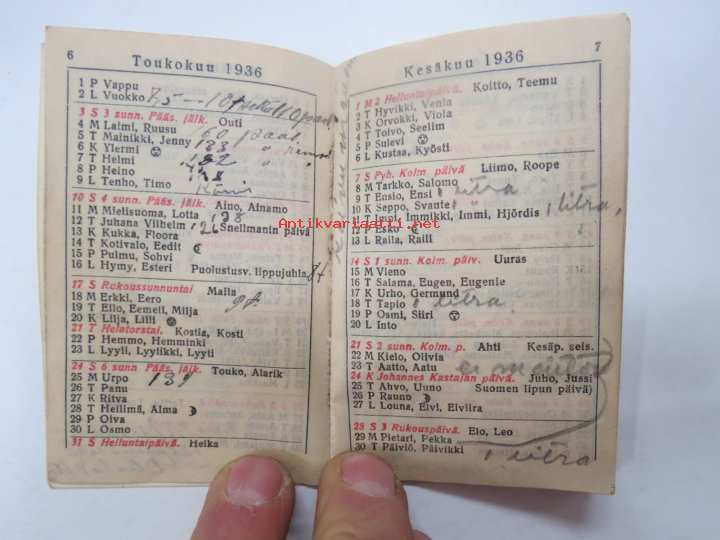 6
Toukokuu 1936
1 P Vappu
2 L Vuokko 75 — 10
3 S 3 sunn. Pääs. jälk. Outi
4 M Laimi, Ruusu 60 paal.
5 T Mainikki, Jenny 133 "
6 K Ylermi "
7 T Helmi 132
8 P Heino
9 L Tenho, Timo
10 S 4 sunn. Pääs. jälk. Aino, Ainamo
11 M Mielisuoma, Lotta 128
12 T Juhana Vilhelm 126 Snellmanin päivä
13 K Kukka, Floora
14 T Kotivalo, Eedit
15 P Pulmu, Sohvi
16 L Hymy, Esteri Puolustusv. lippujuhla
17 S Rukoussunnuntai Maila
18 M Erkki, Eero
19 T Eilo, Eemeli, Milja
20 K Lilja, Lilli
21 T Helatorstai. Kostia, Kosti
22 P Hemmo, Hemminki
23 L Lyyli, Lyylikki, Lyyti
24 S 6 sunn. Pääs. jälk. Touko, Alarik
25 M Urpo 139
26 T Panu
27 K Ritva
28 T Hellimä, Alma
29 P Oiva
30 L Osmo
31 S Helluntaipäivä. Helka
7
Kesäkuu 1936
1 M 2 Helluntaipäivä. Koitto, Teemu
2 T Hyvikki, Venla
3 K Orvokki, Viola
4 T Toivo, Seelim
5 P Sulevi
6 L Kustaa, Kyösti
7 S Pyh. Kolm. päivä Liimo, Roope
8 M Tarkko, Salomo
9 T Ensio, Ensi litra
10 K Seppo, Svante
11 T Impi, Immikki, Immi, Hjördis 1 litra,
12 P Esko
13 L Raila, Raili
14 S 1 sunn. Kolm. päiv. Uuras
15 M Vieno
16 T Salama, Eugen, Eugenie
17 K Urho, Germund
18 T Tapio 1 litra.
19 P Osmi, Siiri
20 L Into
21 S 2 sunn. Kolm. p. Ahti Kesäp. seis.
22 M Kielo, Olivia
23 T Aatto, Aatu ei
24 K Johannes Kastajan päivä. Juho, Jussi
25 T Ahvo, Uuno Suomen lipun päivä)
26 P Rauno
27 L Louna, Elvi, Elviira
28 S 3 Rukouspäivä. Elo, Leo
29 M Pietari, Pekka
30 T Päiviö, Päivikki 1 litra
Antikvariaatti.net